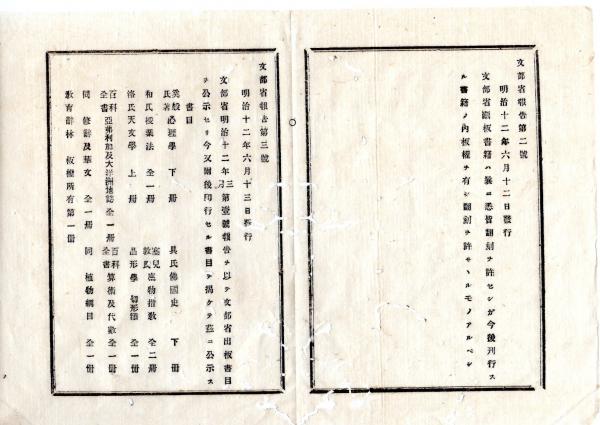 文部省報告第二號
明治十二年六月十二日發行
文部省藏板書籍ハ曩ニ悉皆翻刻ヲ許セシガ今後刊行ス
ル書籍ノ內板權ヲ有シ翻刻ヲ許サヽルモノアルベシ
文部省報告第三號
明治十二年六月十三日發行
文部省明治十二年三月第壹號報告ヲ以テ文部省出板書目
ヲ公示セリ今又爾後刊行セル書目ヲ揭ケテ茲ニ公示ス
書目
奚般氏著心理學 下 册 具氏佛國史 下 册
和氏授業法 全一册 塞兒敦氏庶物指敎 全二册
洛氏天文學 上 册 晶形學 全一册
百科全書亞弗利加及大洋洲地誌 全一册 百科全書算術及代數 全一册
同 修辭及華文 全一册 同 植物綱目 全一册
敎育辭林 板權所有第一册